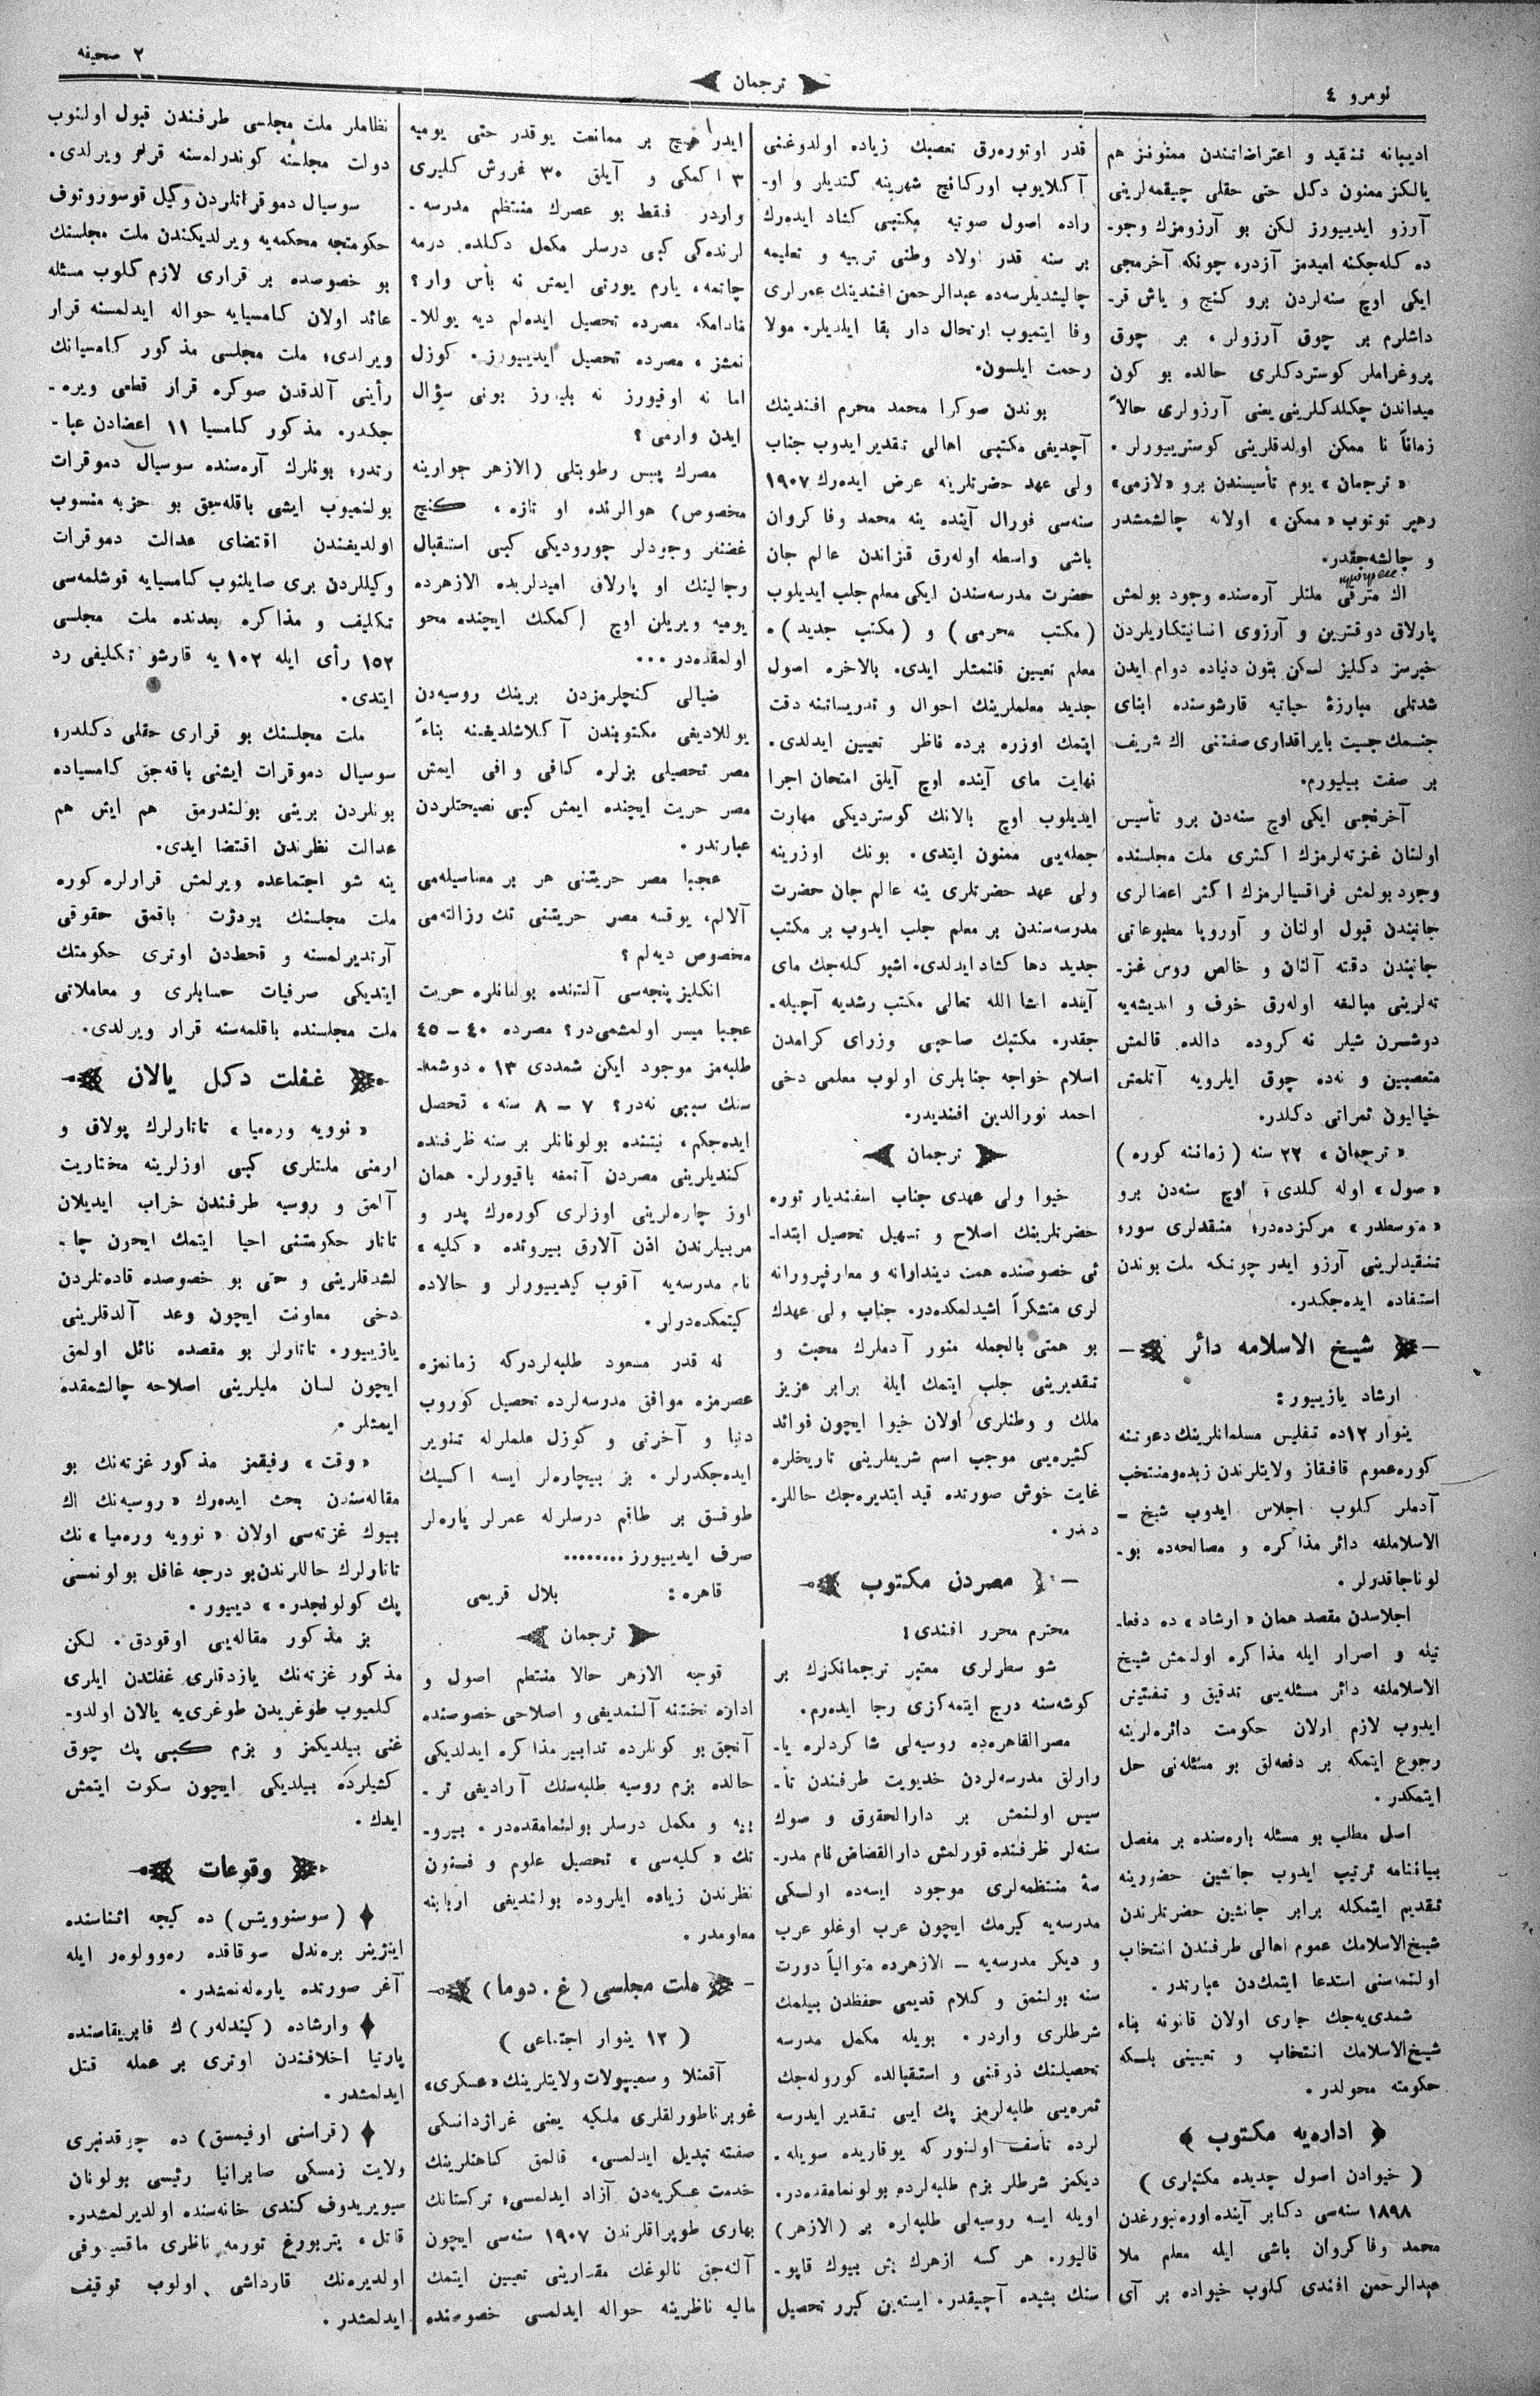 نومرو ٤
ترجمان
٢ صحیفه
ادیبانه تنقید و اعتراضاتندن ممنونز هم
یالکز ممنون دکل حتی حقلی چیقمه‌لرینی
آرزو ایدییورز لکن بو آرزومزك وجو-
ده کله‌جکنه امیدمز آزدر، چونکه آخرمجی
ایکی اوچ سنه‌لردن برو کنج و یاش قر-
داشلرم بر چوق آرزولر، بر چوق
پروغراملر کوستردکلری حالده بو کون
میداندن چکلدکلرینی یعنی آرزولری حالاً
زماناً نا ممکن اولدقلرینی کوسترییورلر.
«ترجمان» یوم تأسیسندن برو «لازمی»
رهبر توتوب «ممکن» اولانه چالشمشدر
و چالشه‌جقدر.
اك مترقی ملتلر آره‌سنده وجود بولمش
پارلاق دوقترین و آرزوی انسانیتکاریلردن
خبرسز دکلیز لسکن بتون دنیاده دوام ایدن
شدتلی مبارزۀ حیاتیه قارشوسنده ابنای
جنسمك جسیت بایراقداری صفتنی اك شریف
بر صفت بیلیورم.
آخرنجی ایکی اوچ سنه‌دن برو تأسیس
اولنان غزته‌لرمزك اکثری ملت مجلسنده
وجود بولمش فراقسیالرمزك اکثر اعضالری
جانبندن قبول اولنان و آوروپا مطبوعاتی
جانبندن دقته آلنان و خالص روس غز-
ته‌لرینی مبالغه اوله‌رق خوف و اندیشه‌یه
دوشسرن شیلر نه کروده دالده قالمش
متعصبین و نه‌ده چوق ایلرویه آتلمش
خیالیون ثمراتی دکلدر.
«ترجمان» ٢٢ سنه (زماننه کوره)
«صول» اوله کلدی؛ اوچ سنه‌دن برو
«متوسطدر» مرکزده‌در؛ منقدلری سور؛
تنقیدلرینی آرزو ایدر چونکه ملت بوندن
استفاده ایده‌جکدر.
شیخ الاسلامه دائر
ارشاد یازییور:
ینوار ١٢ده تفلیس مسلمانلرینك دعوتنه
کوره عموم قافقاز ولایتلرندن زبده و منتخب
آدملر کلوب اجلاس ایدوب شیخ -
الاسلاملغه دائر مذاکره و مصالحه‌ده بو-
لوناجاقدرلر.
اجلاسدن مقصد همان «ارشاد» ده دفعا-
تیله و اصرار ایله مذاکره اولنمش شیخ
الاسلاملغه دائر مسئله‌یی تدقیق و تفتیش
ایدوب لازم اولان حکومت دائره‌لرینه
رجوع ایتمکه بر دفعه‌لق بو مسئله‌نی حل
ایتمکدر.
اصل مطلب بو مسئله باره‌سنده بر مفصل
بیاننامه ترتیب ایدوب جانشین حضورینه
تقدیم ایتمکله برابر جانشین حضرتلرندن
شیخ‌الاسلامك عموم اهالی طرفندن انتخاب
اولنمه‌سنی استدعا ایتمك‌دن عبارتدر.
شمدی‌یه‌جك جاری اولان قانونه بناء
شیخ‌الاسلامك انتخاب و تعیینی بلسکه
حکومته محولدر.
اداره‌یه مکتوب
(خیوادن اصول جدیده مکتبلری)
١٨٩٨ سنه‌سی دکابر آینده اوره‌نبورغدن
محمد وفا کروان باشی ایله معلم ملا
عبدالرحمن افندی کلوب خیواده بر آی
قدر اوتوره‌رق تعصبك زیاده اولدوغنی
آکلایوب اورکانچ شهرینه کتدیلر و او-
راده اصول صوتیه مکتبی کشاد ایده‌رك
بر سنه قدر اولاد وطنی تربیه و تعلیمه
چالیشدیلرسه‌ده عبدالرحمن افندینك عمرلری
وفا ایتمیوب ارتحال دار بقا ایلدیلر. مولا
رحمت ایلسون.
بوندن صوکرا محمد محرم افندینك
آچدیغی مکتبی اهالی تقدیر ایدوب جناب
ولی عهد حضرتلرینه عرض ایده‌رك ١٩٠٧
سنه‌سی فورال آینده ینه محمد وفا کروان
باشی واسطه اوله‌رق قزاندن عالم جان
حضرت مدرسه‌سندن ایکی معلم جلب ایدیلوب
(مکتب محرمی) و (مکتب جدید)ه
معلم تعیین قلنمشلر ایدی. بالاخره اصول
جدید معلملرینك احوال و تدریساتنه دقت
ایتمك اوزره برده ناظر تعیین ایدلدی.
نهایت مای آینده اوچ آیلق امتحان اجرا
ایدیلوب اوچ بالانك کوستردیکی مهارت
جمله‌یی ممنون ایتدی. بونك اوزرینه
ولی عهد حضرتلری ینه عالم جان حضرت
مدرسه‌سندن بر معلم جلب ایدوب بر مکتب
جدید دها کشاد ایدلدی. اشبو کله‌جك مای
آینده انشا الله تعالی مکتب رشدیه آچیله-
جقدر. مکتبك صاحبی وزرای کرامدن
اسلام خواجه جنابلری اولوب معلمی دخی
احمد نورالدین افندیدر.
ترجمان
خیوا ولی عهدی جناب اسفندیار توره
حضرتلرینك اصلاح و تسهیل تحصیل ابتدا-
ئی خصوصنده همت دیندارانه و معارفپرورانه
لری متشکراً اشیدلمکده‌در. جناب ولی عهدك
بو همتی بالجمله منور آدملرك محبت و
تقدیرینی جلب ایتمك ایله برابر عزیز
ملك و وطنلری اولان خیوا ایچون فوائد
کثیره‌یی موجب اسم شریفلرینی تاریخلره
غایت خوش صورتده قید ایتدیره‌جك حاللر-
دندر.
مصردن مکتوب
محترم محرر افندی!
شو سطرلری معتبر ترجمانکزك بر
کوشه‌سنه درج ایتمه‌کزی رجا ایده‌رم.
مصرالقاهره‌ده روسیه‌لی شاکردلره یا-
رارلق مدرسه‌لردن خدیویت طرفندن تأ-
سیس اولنمش بر دارالحقوق و صوك
سنه‌لر ظرفنده قورلمش دارالقضاض نام مدر-
سۀ منتظمه‌لری موجود ایسه‌ده اولسکی
مدرسه‌یه کیرمك ایچون عرب اوغلو عرب
و دیکر مدرسه‌یه - الازهرده متوالیاً دورت
سنه بولنمق و کلام قدیمی حفظدن بیلمك
شرطلری واردر. بویله مکمل مدرسه
تحصیلنك ذوقنی و استقبالده کوروله‌جك
ثمره‌یی طلبه‌لرمز پك ایی تقدیر ایدرسه
لرده تأسف اولنور که یوقاریده سویله-
دیکمز شرطلر بزم طلبه‌لرده بولونمامقده‌در.
اویله ایسه روسیه‌لی طلبه‌لره بر (الازهر)
قالیور. هر کسه ازهرك بش بیوك قاپو-
سنك بشیده آچیقدر. ایسته‌ین کیرر تحصیل
ایدر هیچ بر ممانعت یوقدر حتی یومیه
٣ اکمکی و آیلق ٣٠ غروش کلیری
واردر. فقط بو عصرك منتظم مدرسه-
لرنده‌کی کبی درسلر مکمل دکلده، درمه
چاتمه، یارم یورتی ایمش نه بأس وار؟
مادامکه مصرده تحصیل ایده‌لم دیه یوللا-
نمشز، مصرده تحصیل ایدییورز. کوزل
اما نه اوقیورز نه بلیورز بونی سؤال
ایدن وارمی؟
مصرك پیس رطوبتلی (الازهر جوارینه
مخصوص) هوالرنده او تازه، کنچ
غضنفر وجودلر چورودیکی کبی استقبال
رجالینك او پارلاق امیدلریده الازهرده
یومیه ویریلن اوچ اکمکك ایچنده محو
اولمقده‌در...
ضیالی کنچلرمزدن برینك روسیه‌دن
یوللادیغی مکتوبندن آکلاشلدیغنه بناءً
مصر تحصیلی بزلره کافی وافی ایمش
مصر حریت ایچنده ایمش کبی نصیحتلردن
عبارتدر.
عجبا مصر حریتنی هر بر معناسیله‌می
آلالم، یوقسه مصر حریتنی تك رزالته‌می
مخصوص دیه‌لم؟
انکلیز پنجه‌سی آلتنده بولنانلره حریت
عجبا میسر اولمشمی‌در؟ مصرده ٤٠-٤٥
طلبه‌مز موجود ایکن شمددی ١٣ه دوشمه-
سنك سببی نه‌در؟ ٧-٨ سنه، تحصل
ایده‌جکم، نیتنده بولونانلر بر سنه ظرفنده
کندیلرینی مصردن آتمغه باقیورلر. همان
اوز چاره‌لرینی اوزلری کوره‌رك پدر و
مربیلرندن اذن آلارق بیروتده «کلیه»
نام مدرسه‌یه آقوب کیدییورلر و حالاده
کیتمکده‌درلر.
نه قدر مسعود طلبه‌لردرکه زمانمزه
عصرمزه موافق مدرسه‌لرده تحصیل کوروب
دنیا و آخرتی و کوزل علملرله تنویر
ایده‌جکدرلر. بز بیچاره‌لر ایسه اکسیك
طوقسق بر طاقم درسلرله عمرلر پاره‌لر
صرف ایدییورز........
قاهره: بلال قریمی
ترجمان
قوجه الازهر حالا منتظم اصول و
اداره تختنه آلنمدیغی و اصلاحی خصوصنده
آنجق بو کونلرده تدابیر مذاکره ایدلدیکی
حالده بزم روسیه طلبه‌سنك آرادیغی تر-
بیه و مکمل درسلر بولنمامقده‌در. بیرو-
تك «کلیه‌سی» تحصیل علوم و فسنون
نظرندن زیاده ایلروده بولندیغی اربابنه
معلومدر.
ملت مجلسی (غ. دوما)
(١٢ ینوار اجتماعی)
آقمنلا و سمیپولات ولایتلرینك «عسکری»
غوبرناطورلقلری ملکیه یعنی غراژدانسکی
صفته تبدیل ایدلمسی، قالمق کاهنلرینك
خدمت عسکریه‌دن آزاد ایدلمسی؛ ترکستانك
بهاری طوپراقلرندن ١٩٠٧ سنه‌سی ایچون
آلنه‌جق نالوغك مقدارینی تعیین ایتمك
مالیه ناظرینه حواله ایدلمسی خصوصنده
نظاملر ملت مجلسی طرفندن قبول اولنوب
دولت مجلسنه کوندرلمسنه قرار ویرلدی.
سوسیال دموقراتلردن وکیل قوسوروتوف
حکومتجه محکمه‌یه ویرلدیکندن ملت مجلسنك
بو خصوصده بر قراری لازم کلوب مسئله
عائد اولان کامسیایه حواله ایدلمسنه قرار
ویرلدی؛ ملت مجلسی مذکور کامسیانك
رأینی آلدقدن صوکره قرار قطعی ویره-
جکدر. مذکور کامسیا ١١ اعضادن عبا-
رتدر؛ بونلرك آره‌سنده سوسیال دموقرات
بولنمیوب ایشی باقله‌سیق بو حزبه منسوب
اولدیغندن اقتضای عدالت دموقرات
وکیللردن بری صایلنوب کامسیایه قوشلمه‌سی
تکلیف و مذاکره بعدنده ملت مجلسی
١٥٢ رأی ایله ١٠٢ یه قارشو تکلیفی رد
ایتدی.
ملت مجلسنك بو قراری حقلی دکلدر؛
سوسیال دموقرات ایشنی باقه‌جق کامسیاده
بونلردن برینی بولندرمق هم ایش هم
عدالت نظرندن اقتضا ایدی.
ینه شو اجتماعده ویرلمش قرارلره کوره
ملت مجلسنك بودژت باقمق حقوقی
آرتدیرلمسنه و قحطدن اوتری حکومتك
ایتدیکی صرفیات حسابلری و معاملاتی
ملت مجلسنده باقلمه‌سنه قرار ویرلدی.
غفلت دکل یالان
«نوویه وره‌میا» تاتارلرك پولاق و
ارمنی ملتلری کبی اوزلرینه مختاریت
آلمق و روسیه طرفندن خراب ایدیلان
تاتار حکومتنی احیا ایتمك ایچون چا-
لشدقلرینی و حتی بو خصوصده قاده‌تلردن
دخی معاونت ایچون وعد آلدقلرینی
یازییور. تاتارلر بو مقصده نائل اولمق
ایچون لسان ملیلرینی اصلاحه چالشمقده
ایمشلر.
«وقت» رفیقمز مذکور غزته‌نك بو
مقاله‌سندن بحث ایده‌رك «روسیه‌نك اك
بیوك غزته‌سی اولان «نوویه وره‌میا»نك
تاتارلرك حاللرندن بو درجه غافل بولونمسی
پك کولونجدر.» دییور.
بز مذکور مقاله‌یی اوقودق. لکن
مذکور غزته‌نك یازدقلری غفلتدن ایلری
کلمیوب طوغریدن طوغری‌یه یالان اولدو-
غنی بیلدیکمز و بزم کبی پك چوق
کشیلرده بیلدیکی ایچون سکوت ایتمش
ایدك.
وقوعات
(سوسنوویتس) ده کیجه اثناسنده
اینژینر بره‌ندل سوقاقده ره‌وولوه‌ر ایله
آغر صورتده یاره‌له‌نمشدر.
وارشاده (کیندلر)ك فابریقاسنده
پارتیا اخلافندن اوتری بر عمله قتل
ایدلمشدر.
(قراسنی اوفیمسق) ده چرقدنیری
ولایت زمسکی صابرانیا رئیسی بولونان
سویریدوف کندی خانه‌سنده اولدیرلمشدر.
قاتل، پتربورغ تورمه ناظری ماقسیموفی
اولدیره‌نك قارداشی اولوب توقیف
ایدلمشدر.